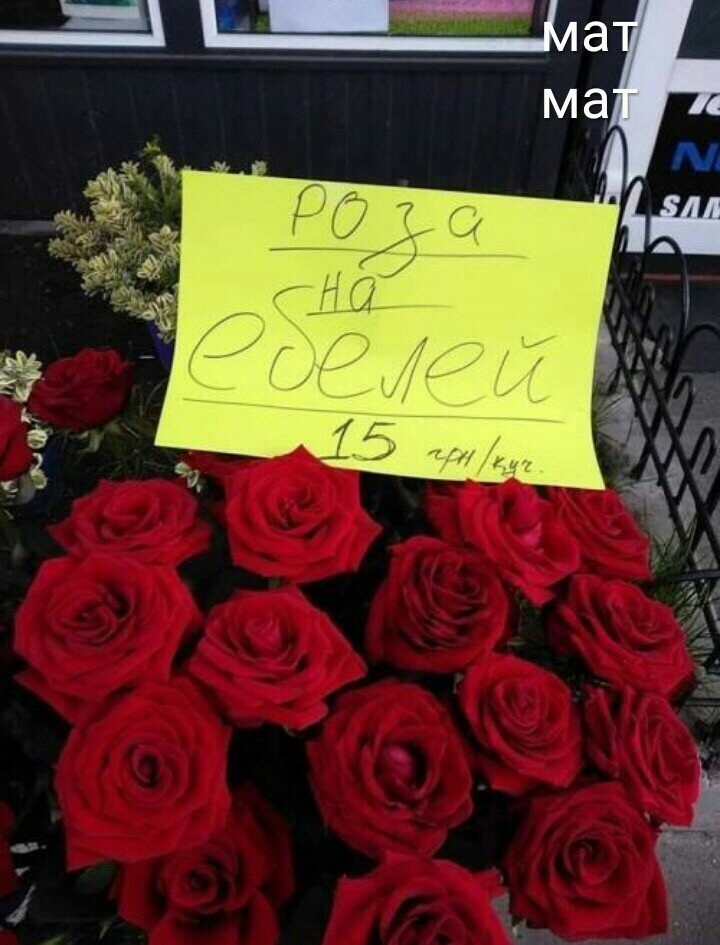 мат
мат
роза
на
ебелей
15 грн/куч.
SAM